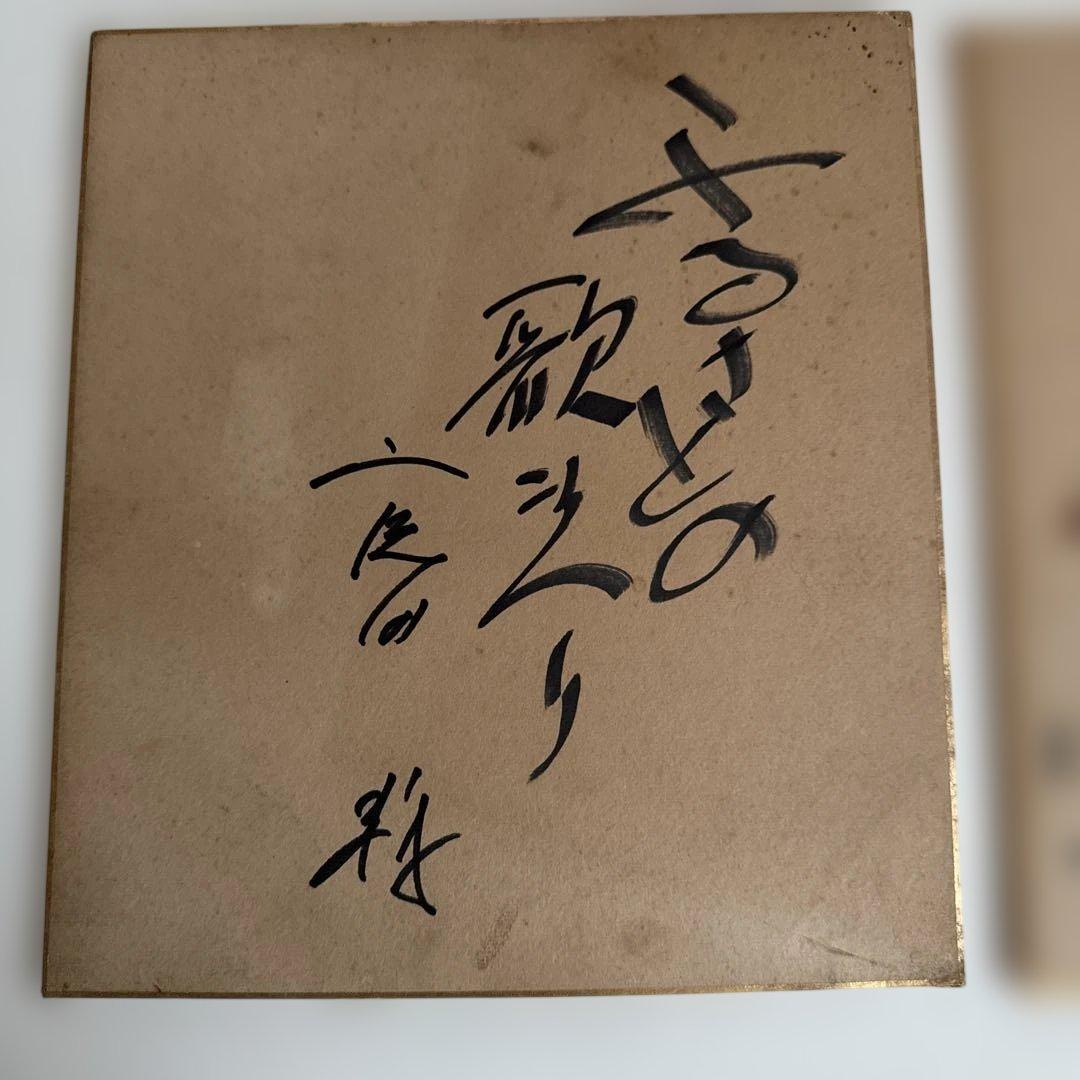 ふるさとの
歌まつり
宮田 輝